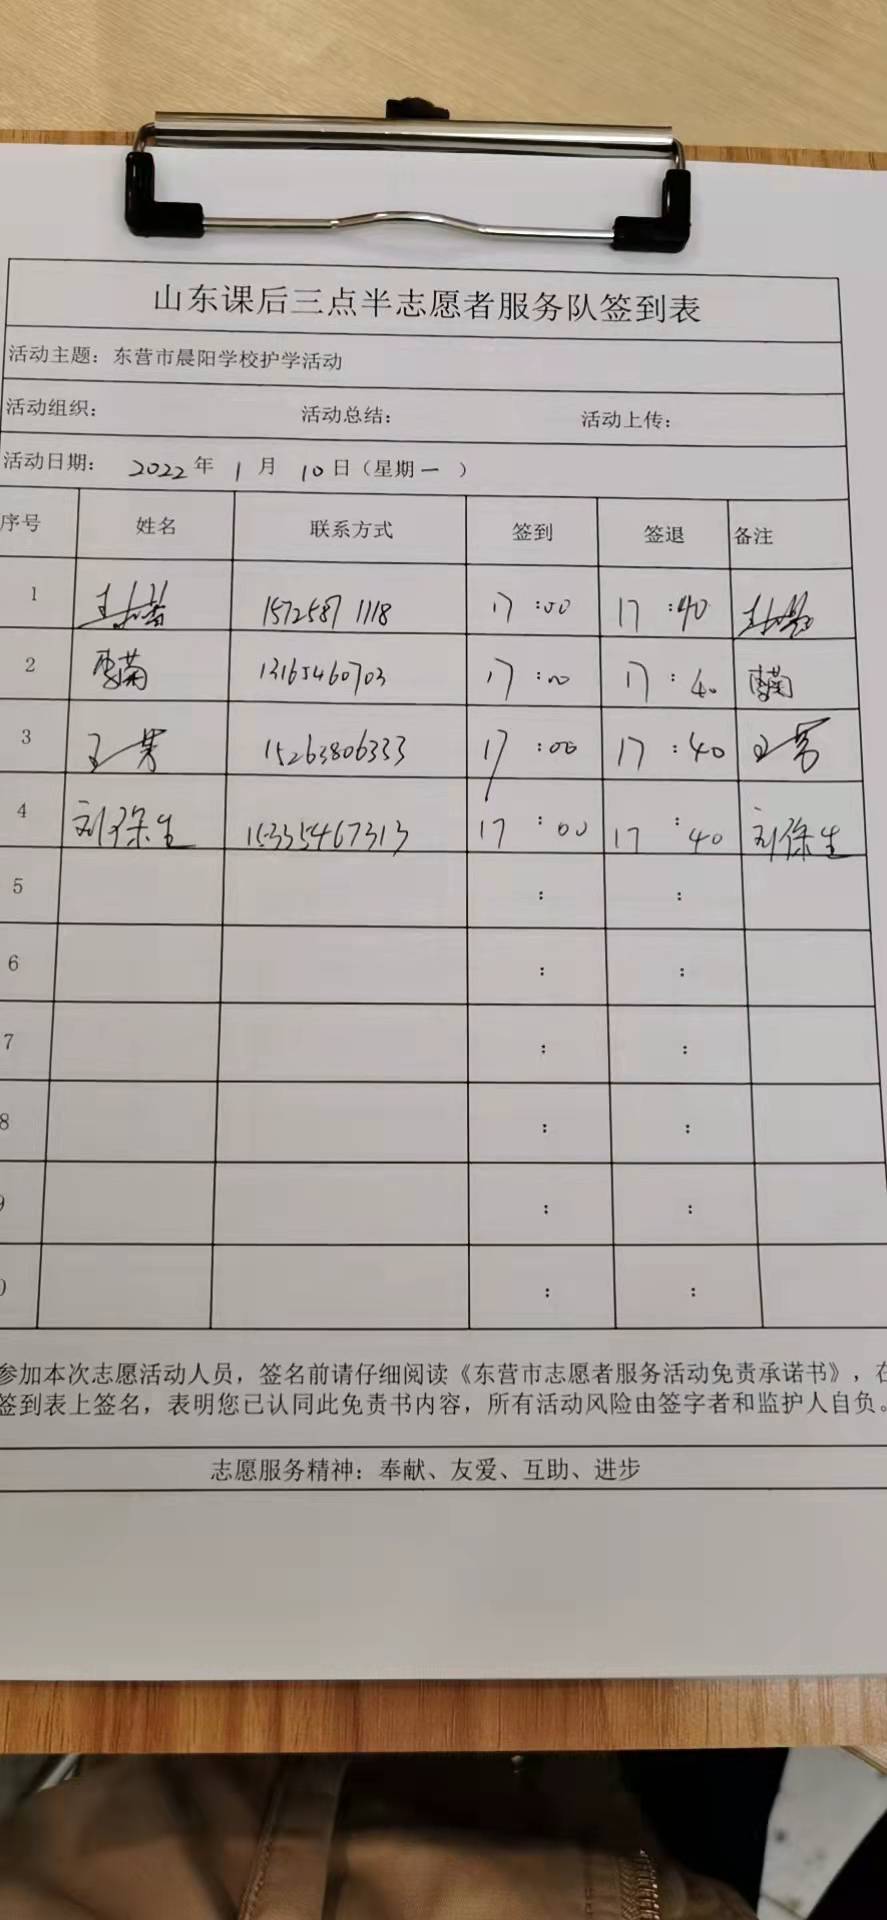 山东课后三点半志愿者服务队签到表
活动主题：东营市晨阳学校护学活动
活动组织： 活动总结： 活动上传：
活动日期： 2022年 1月 10日（星期一 ）
序号 姓名 联系方式 签到 签退 备注
1 15725871118 17:00 17:40
2 13165460703 17:00 17:40
3 王芳 15263806333 17:00 17:40 王芳
4 刘保生 15335467313 17:00 17:40 刘保生
5 : :
6 : :
7 : :
8 : :
: :
: :
参加本次志愿活动人员，签名前请仔细阅读《东营市志愿者服务活动免责承诺书》，在
签到表上签名，表明您已认同此免责书内容，所有活动风险由签字者和监护人自负。
志愿服务精神：奉献、友爱、互助、进步